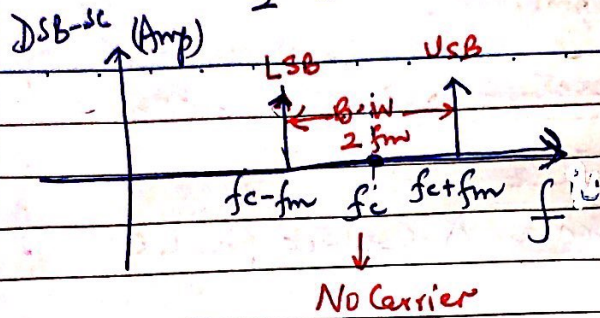 2
DSB-SC (Amp)
LSB USB
B·W
2fm
fc-fm fc fc+fm f
No Carrier